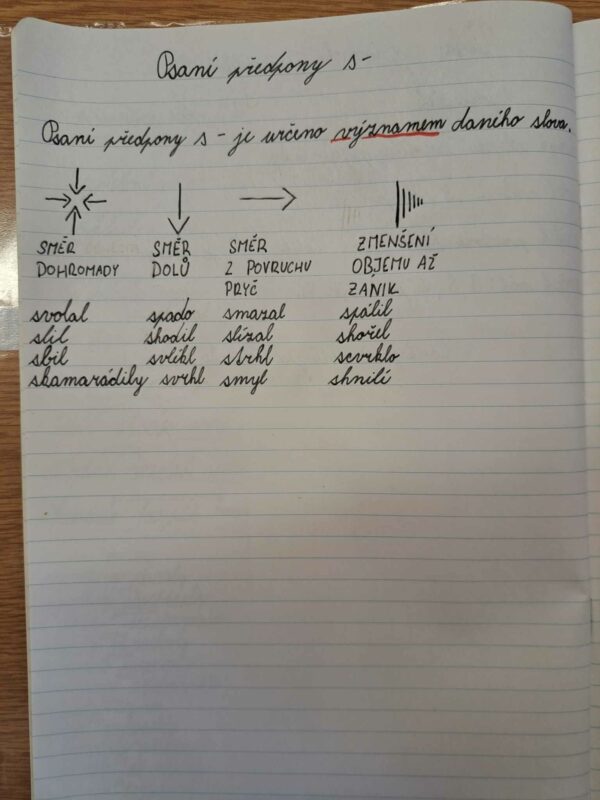 Psaní předpony s-
Psaní předpony s- je určeno významem daného slova.
SMĚR SMĚR SMĚR ZMENŠENÍ
DOHROMADY DOLŮ Z POVRUCHU OBJEMU AŽ
PRYČ ZANIK
svolal spado smazal spálil
slil shodil slízal shořel
sbil svlikl strhl scvrklo
skamarádily svrhl smyl shnilí